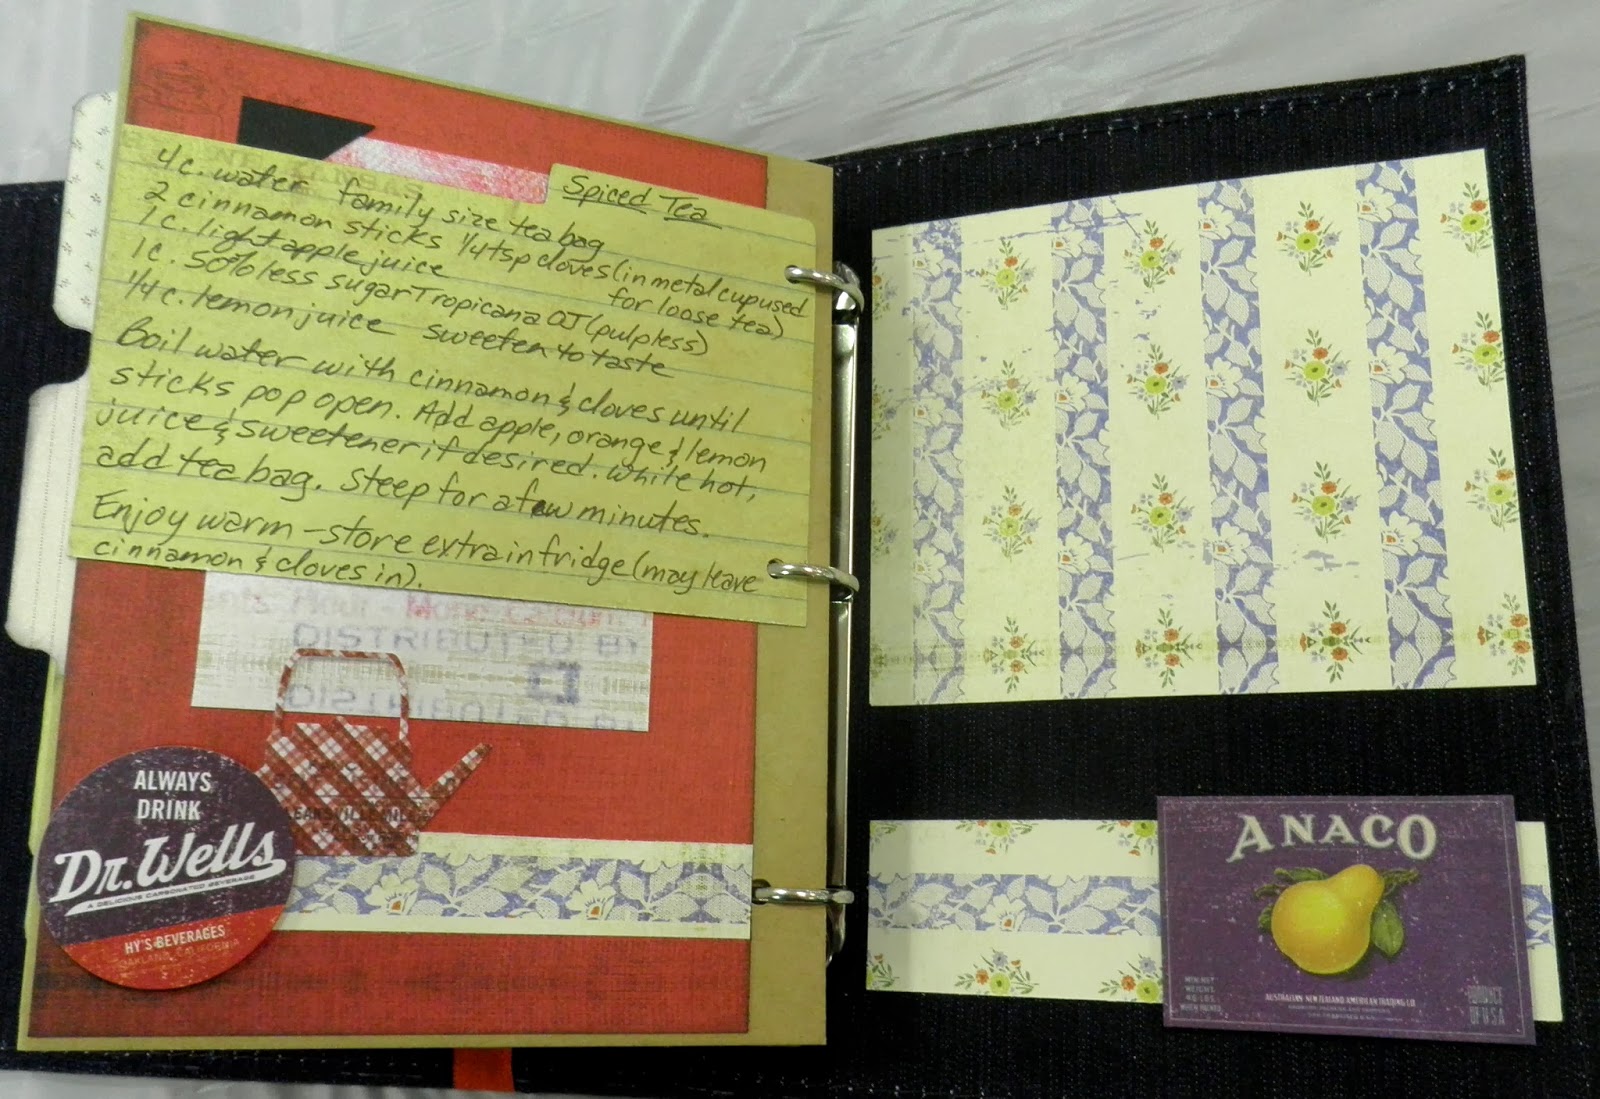 Spiced Tea
4c. water family size tea bag
2 cinnamon sticks 1/4 tsp cloves (in metal cup used
for loose tea)
1c. light apple juice
1c. 50% less sugar Tropicana OJ (pulpless)
1/4 c. lemon juice sweeten to taste
Boil water with cinnamon & cloves until
sticks pop open. Add apple, orange & lemon
juice & sweetener if desired. White hot,
add tea bag. Steep for a few minutes.
Enjoy warm - store extra in fridge (may leave
cinnamon & cloves in).
DISTRIBUTED BY
DISTRIBUTED BY
ALWAYS
DRINK
Dr. Wells
A DELICIOUS CARBONATED BEVERAGE
HY'S BEVERAGES
OAKLAND, CALIFORNIA
ANACO
MIN. NET
WEIGHT
46 LBS.
WHEN PACKED
AUSTRALIAN-NEW ZEALAND AMERICAN TRADING CO
PRODUCE
OF U S A